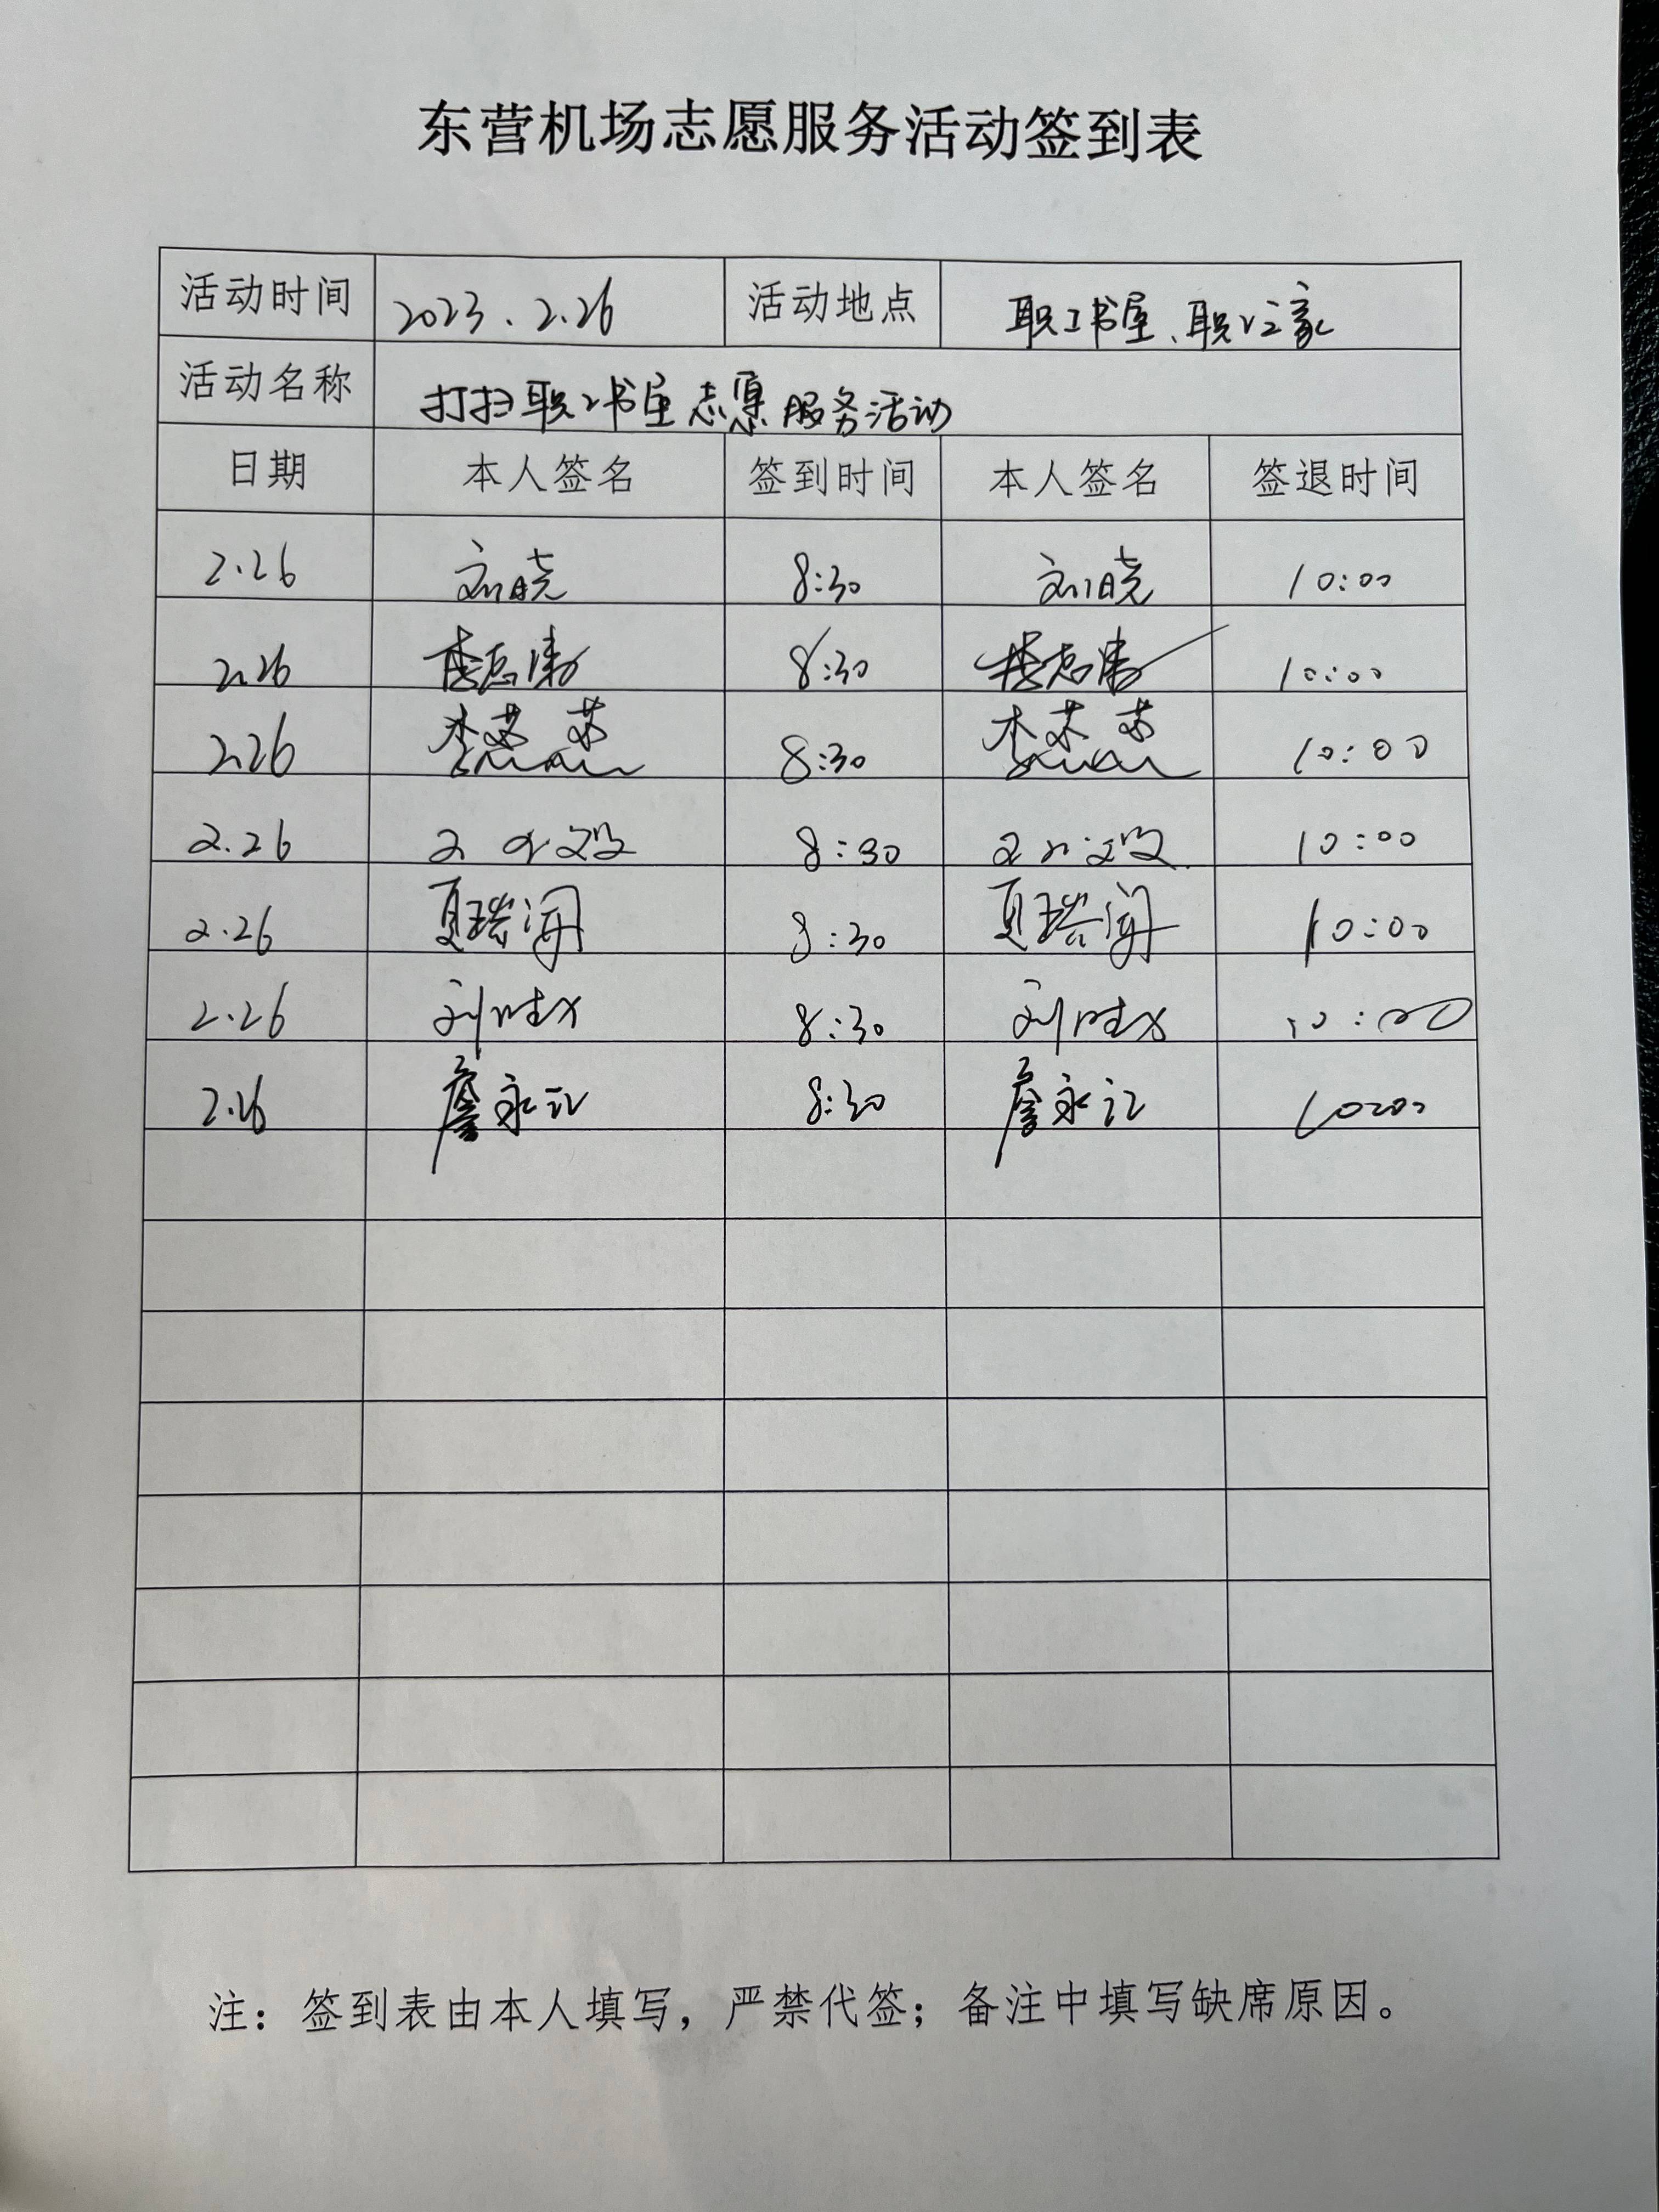 东营机场志愿服务活动签到表
活动时间 2023.2.26 活动地点 职工书屋、职工之家
活动名称 打扫职工书屋志愿服务活动
日期 本人签名 签到时间 本人签名 签退时间
2.26 刘晓 8:30 刘晓 10:00
2.26 李志涛 8:30 李志涛 10:00
2.26 李苏苏 8:30 李苏苏 10:00
2.26 8:30 10:00
2.26 夏瑞海 8:30 夏瑞海 10:00
2.26 刘 8:30 刘 10:00
2.26 詹永江 8:30 詹永江 10:00
注：签到表由本人填写，严禁代签；备注中填写缺席原因。